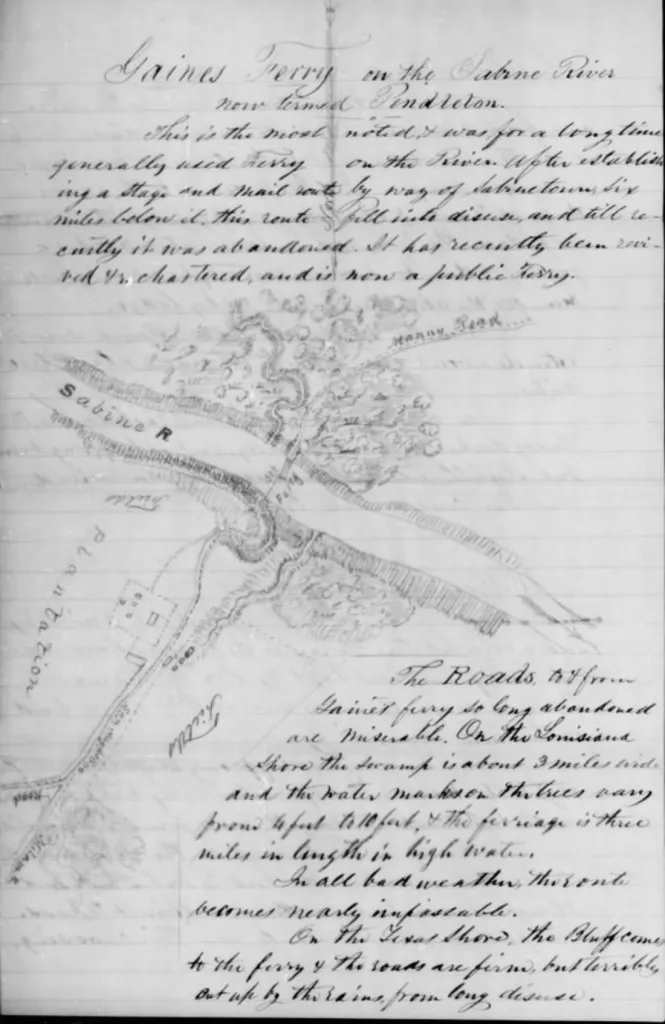 Gaines Ferry on the Sabine River
now termed Pendleton.
This is the most noted, & was for a long time
generally used Ferry on the River. After establish
ing a stage and mail route by way of Sabinetown, six
miles below it, this route fell into disuse, and till re-
cently it was abandoned. It has recently been revi-
ved & re chartered, and is now a public Ferry.
Many Road
Sabine R
Ferry
Fields
Plantation
Fields
Road
Milam
The Roads, to & from
Gaines ferry so long abandoned
are miserable. On the Louisiana
Shore the swamp is about 3 miles wide
and the water marks on the trees vary
from 6 feet to 10 feet, & the ferriage is three
miles in length in high water.
In all bad weather, the route
becomes nearly impassable.
On the Texas Shore, the Bluff comes
to the ferry & the roads are firm, but terribly
cut up by the rains, from long disuse.